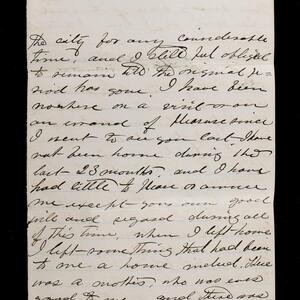 the city for any considerable
time, and I still feel obliged
to remain till the original pe-
riod has gone. I have been
nowhere on a visit or on
an errand of pleasure since
I went to see you last. I have
not been home during the
last 23 months, and I have
had little to please or amuse
me except your own good
self and regard during all
of this time. When I left home
I left something that had been
to me a home indeed. There
was a mother, who was ever
good to me, and there were